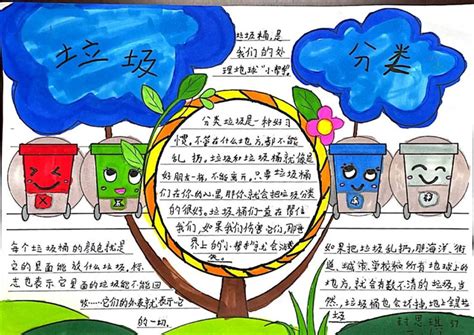 垃圾
分类
垃圾桶,是
我们的处
理地球"小帮
分类垃圾是一种好习
惯,不管在什么地方,都不能
乱扔,垃圾和垃圾桶就像是
好朋友一样,不能离开,只要垃圾桶
们在你的心里,那你就会把垃圾分类
的很好。垃圾桶们一直在帮住
我们,如果我们伤害它们,那世
界上的"小帮手"就会消
每个垃圾桶的颜色就是
它的里面能放什么垃圾,标
志也表示它里面的垃圾能不能
回收……它们的外表就表示它
的一切.
如果把垃圾乱扔,那海洋、街
道、城市、学校和所有地球上的
地方,就会有数不清的垃圾,当
然,垃圾桶也会坏掉,地上全是
垃圾